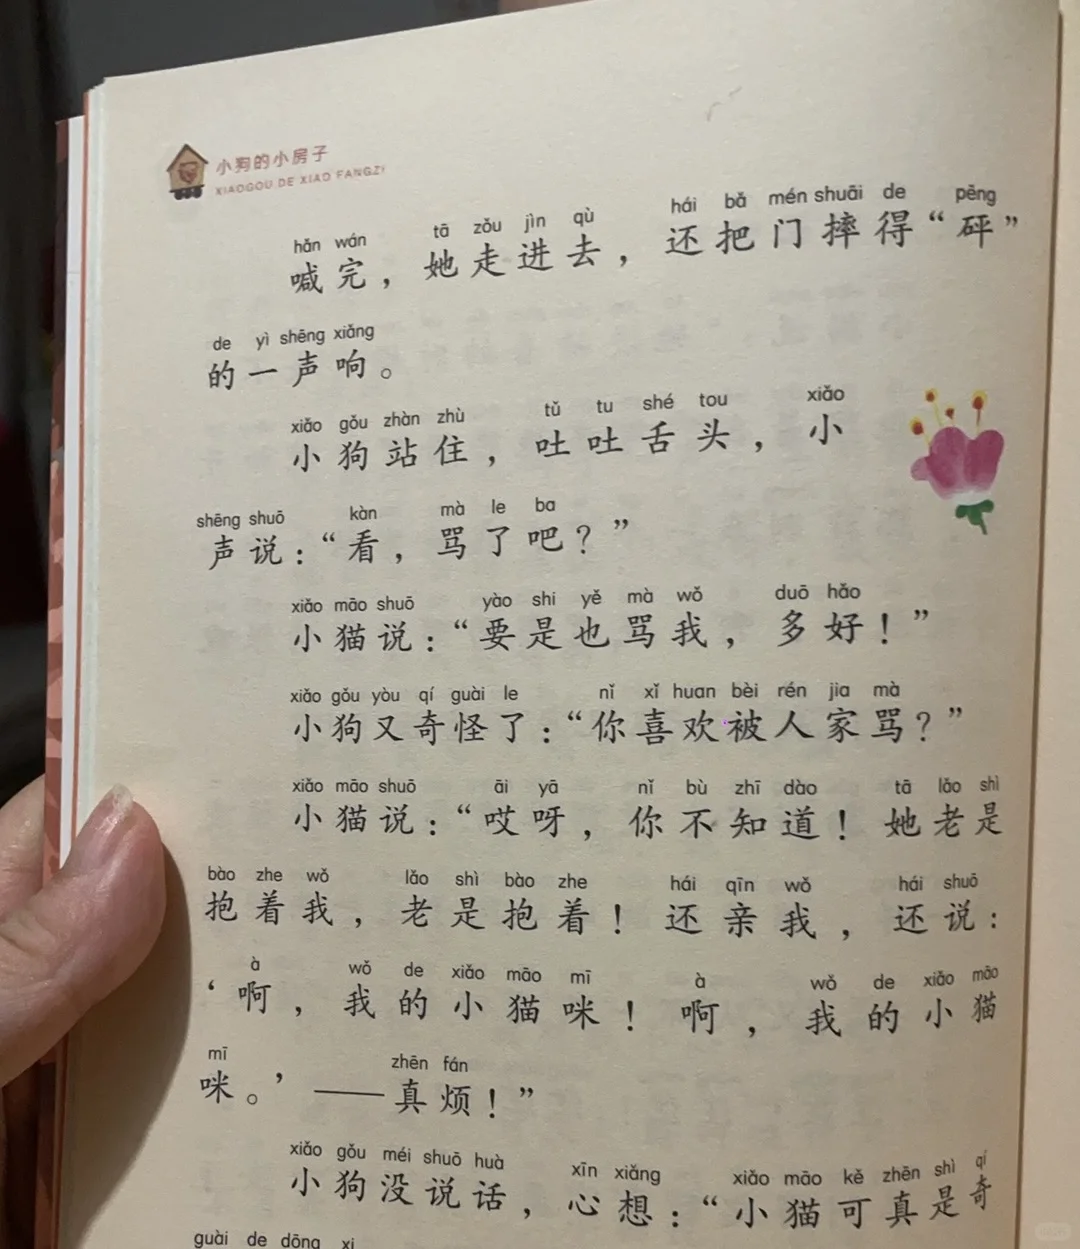 小狗的小房子
XIAOGOU DE XIAO FANGZI
hǎn wán tā zǒu jìn qù hái bǎ mén shuāi de pēng
喊完，她走进去，还把门摔得“砰”
de yì shēng xiǎng
的一声响。
xiǎo gǒu zhàn zhù tǔ tu shé tou xiǎo
小狗站住，吐吐舌头，小
shēng shuō kàn mà le ba
声说：“看，骂了吧？”
xiǎo māo shuō yào shi yě mà wǒ duō hǎo
小猫说：“要是也骂我，多好！”
xiǎo gǒu yòu qí guài le nǐ xǐ huan bèi rén jia mà
小狗又奇怪了：“你喜欢被人家骂？”
xiǎo māo shuō āi yā nǐ bù zhī dào tā lǎo shì
小猫说：“哎呀，你不知道！她老是
bào zhe wǒ lǎo shì bào zhe hái qīn wǒ hái shuō
抱着我，老是抱着！还亲我，还说：
à wǒ de xiǎo māo mī à wǒ de xiǎo māo
‘啊，我的小猫咪！啊，我的小猫
mī zhēn fán
咪。’——真烦！”
xiǎo gǒu méi shuō huà xīn xiǎng xiǎo māo kě zhēn shì qí
小狗没说话，心想：“小猫可真是奇
guài de dōng xi